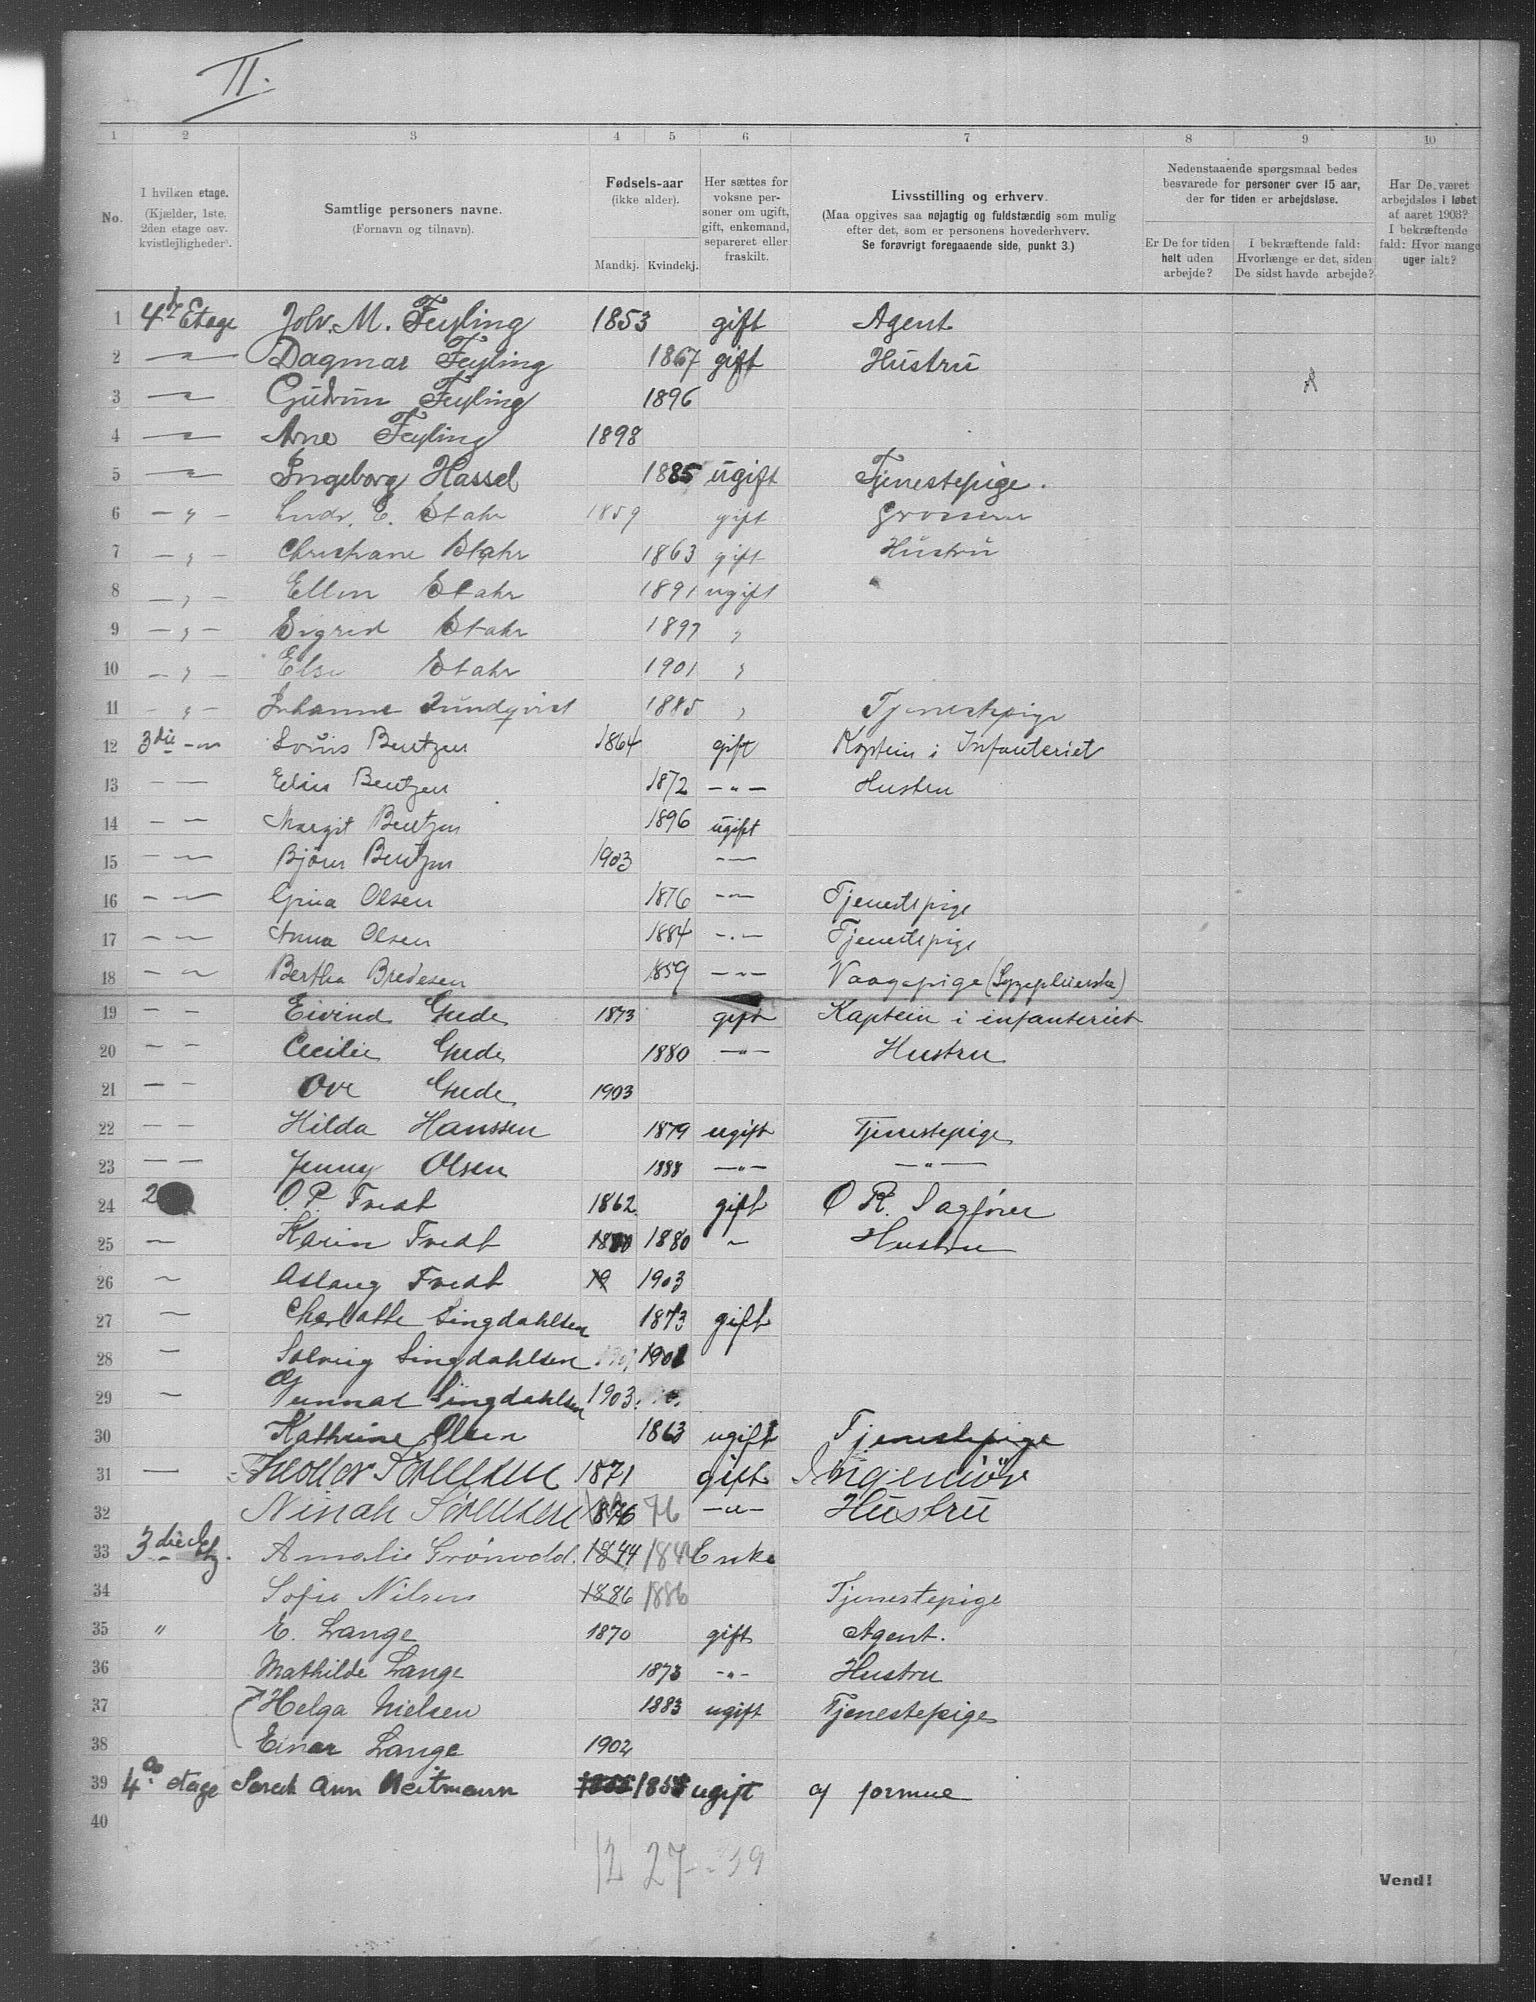 II.
1 2 3 4 5 6 7 8 9 10
No.
I hvilken etage.
(Kjælder, 1ste,
2den etage osv.
kvistlejligheder).
Samtlige personers navne.
(Fornavn og tilnavn).
Fødsels-aar
(ikke alder).
Mandkj. Kvindekj.
Her sættes for
voksne per-
soner om ugift,
gift, enkemand,
separeret eller
fraskilt.
Livsstilling og erhverv.
(Maa opgives saa nøjagtig og fuldstændig som mulig
efter det, som er personens hovederhverv.
Se forøvrigt foregaaende side, punkt 3.)
Nedenstaaende spørgsmaal bedes
besvarede for personer over 15 aar,
der for tiden er arbejdsløse.
Er De for tiden
helt uden
arbejde?
I bekræftende fald:
Hvorlænge er det, siden
De sidst havde arbejde?
Har De været
arbejdsløs i løbet
af aaret 1903?
I bekræftende
fald: Hvor mange
uger ialt?
1 4 Etage Joh. M. Feyling 1853 gift Agent
2 — " — Dagmar Feyling 1867 gift Hustru
3 — " — Gudrun Feyling 1896
4 — " — Arne Feyling 1898
5 — " — Ingeborg Hassel 1885 ugift Tjenestepige.
6 — " — Ludv. E. Stahr 1859 gift Grosserer
7 — " — Christiane Stahr 1863 gift Hustru
8 — " — Ellen Stahr 1891 ugift
9 — " — Sigrid Stahr 1897 "
10 — " — Else Stahr 1901 "
11 — " — Johanne Lundqvist 1885 " Tjenestepige
12 3die — " — Louis Bentzen 1864 gift Kaptein i Infanteriet
13 — — Elise Bentzen 1872 — " — Hustru
14 — — Margit Bentzen 1896 ugift
15 — — Bjørn Bentzen 1903 — " —
16 — — Grina Olsen 1876 — " — Tjenestepige
17 — — Anna Olsen 1884 — " — Tjenestepige
18 — — Bertha Bredesen 1859 — " — Vaagepige (Sygepleierske)
19 — — Eivind Gude 1873 gift Kaptein i infanteriet
20 — — Cecilie Gude 1880 — " — Hustru
21 — — Ove Gude 1903
22 — — Hilda Hanssen 1879 ugift Tjenestepige
23 — — Jenny Olsen 1888 — " — — " —
24 2 O. P. Tvedt 1862 gift O R. Sagfører
25 — Karin Tvedt 1880 1880 " Hustru
26 — Aslaug Tvedt 19 1903
27 — Charlotte Lingdahlsen 1873 gift
28 — Solveig Lingdahlsen 1901 1901
29 — Gunnar Lingdahlsen 1903.
30 Kathrine Olsen 1863 ugift Tjenestepige
31 — Theodor Sørensen 1871 gift Ingeniør
32 Ninah Sørensen 1876 76 — " — Hustru
33 3die Etg. Amalie Grönvold. 1844 1844 Enke
34 Sofie Nilsen 1886 1886 Tjenestepige
35 " E. Lange 1870 gift Agent.
36 Mathilde Lange 1873 — " — Hustru
37 Helga Nielsen 1883 ugift Tjenestepige
38 Einar Lange 1902
39 4de etage Sarah Ann Heitmann 1855 1855 ugift af formue
40
12 27 - 39
Vend!